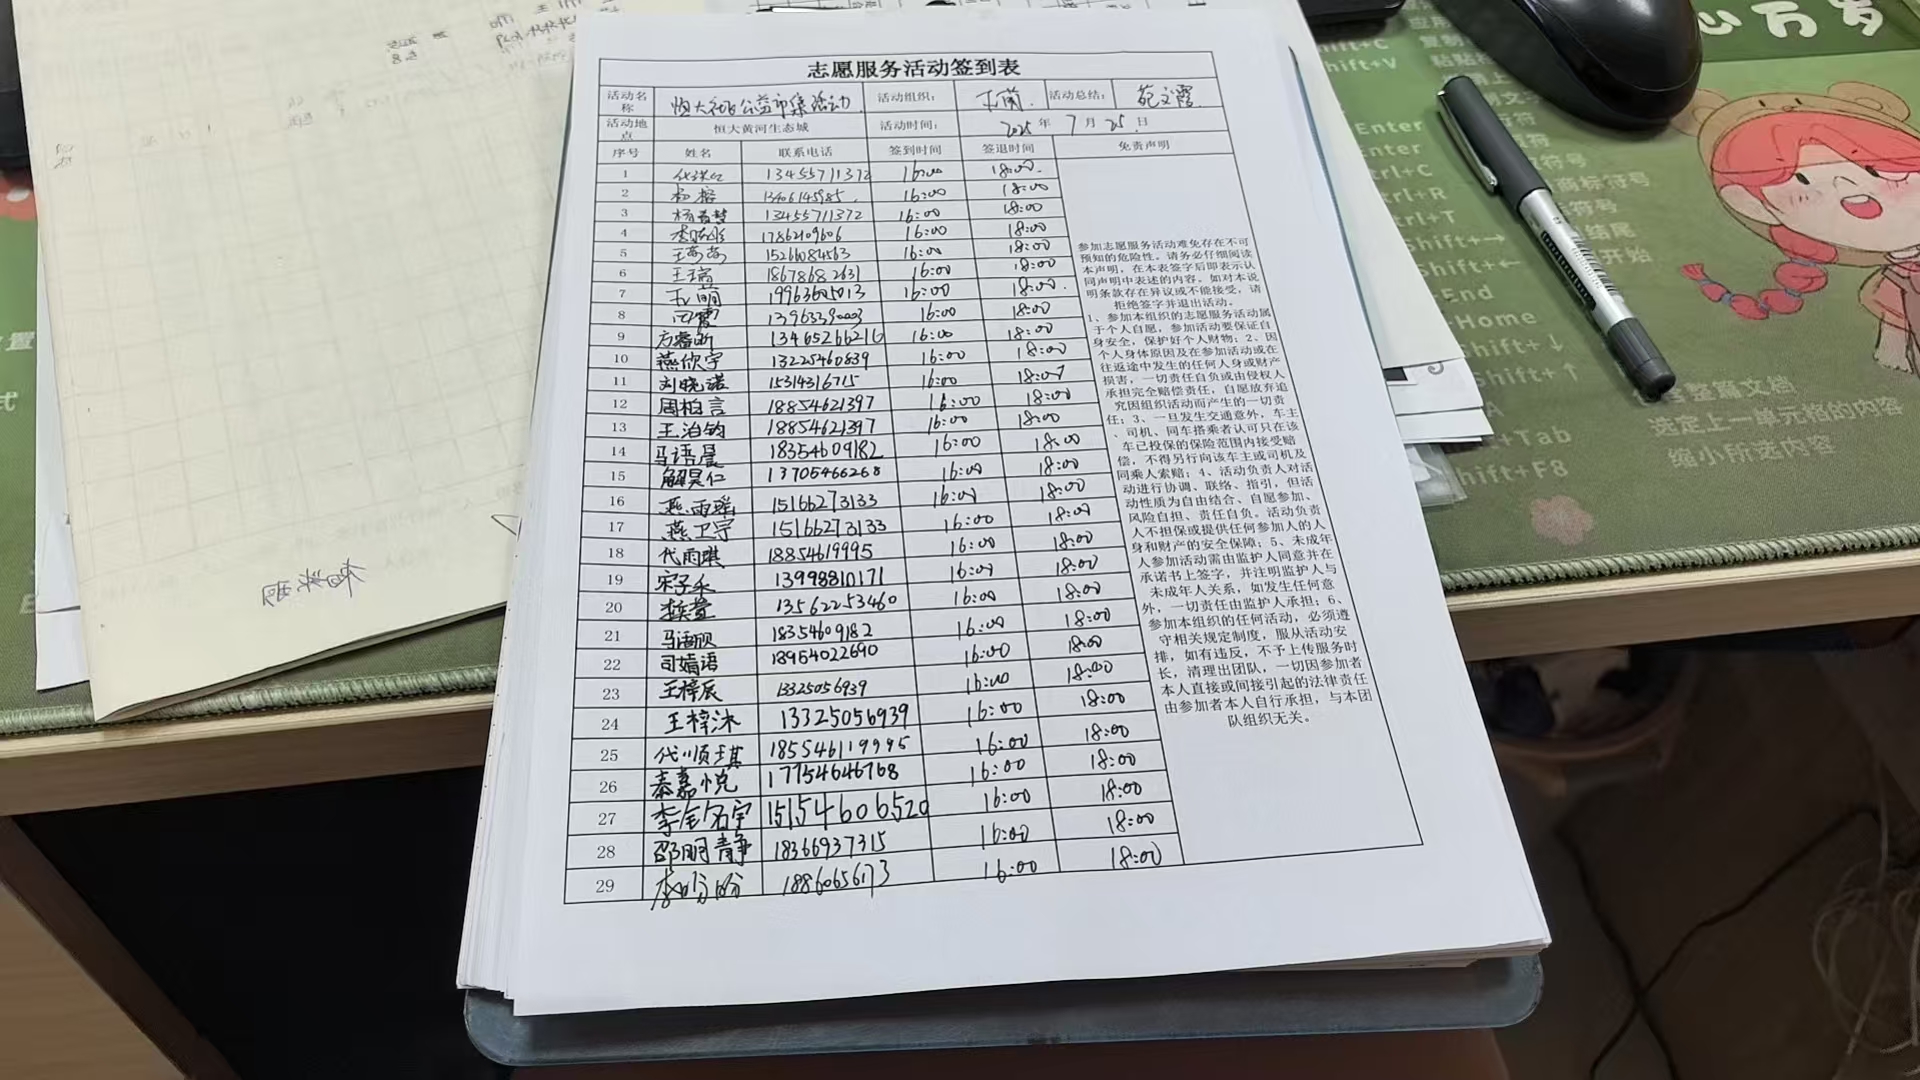 志愿服务活动签到表
活动名称 恒大社区公益市集活动 活动组织: 王萌 活动总结: 苑文霞
活动地点 恒大黄河生态城 活动时间: 2025 年 7 月 25 日
序号 姓名 联系电话 签到时间 签退时间 免责声明
1 13455711372 16:00 18:00
2 杨榕 13406145985 16:00 18:00
3 13455711372 16:00 18:00
4 17862109606 16:00 18:00
5 15266084563 16:00 18:00
6 王瑞 18678682631 16:00 18:00
7 王萌 19963605013 16:00 18:00
8 13963390003 16:00 18:00
9 方睿昕 13465266216 16:00 18:00
10 燕欣宇 13225460839 16:00 18:00
11 刘晓诺 15314316715 16:00 18:00
12 周柏言 18854621397 16:00 18:00
13 王泊钧 18854621397 16:00 18:00
14 马语晨 18354609182 16:00 18:00
15 解昊仁 13705466268 16:00 18:00
16 燕雨瑶 15166273133 16:00 18:00
17 燕卫宇 15166273133 16:00 18:00
18 代雨琪 18854619995 16:00 18:00
19 宋子禾 13998810171 16:00 18:00
20 13562253460 16:00 18:00
21 18354609182 16:00 18:00
22 司婧语 18954022690 16:00 18:00
23 王梓辰 13325056939 16:00 18:00
24 王梓沐 13325056939 16:00 18:00
25 代顺琪 185546119995 16:00 18:00
26 秦嘉悦 17754646768 16:00 18:00
27 15154606520 16:00 18:00
28 邵明静 18366937315 16:00 18:00
29 18860656173 16:00 18:00
参加志愿服务活动难免存在不可
预知的危险性，请务必仔细阅读
本声明，在本表签字后即表示认
同声明中表述的内容。如对本说
明条款存在异议或不能接受，请
拒绝签字并退出活动。
1、参加本组织的志愿服务活动属
于个人自愿，参加活动要保证自
身安全，保护好个人财物；2、因
个人身体原因及在参加活动或在
往返途中发生的任何人身或财产
损害，一切责任自负或由侵权人
承担完全赔偿责任，自愿放弃追
究因组织活动而产生的一切责
任；3、一旦发生交通意外，车主
、司机、同车搭乘者认可只在该
车已投保的保险范围内接受赔
偿，不得另行向该车主或司机及
同乘人索赔；4、活动负责人对活
动进行协调、联络、指引，但活
动性质为自由结合、自愿参加、
风险自担、责任自负。活动负责
人不担保或提供任何参加人的人
身和财产的安全保障；5、未成年
人参加活动需由监护人同意并在
承诺书上签字，并注明监护人与
未成年人关系，如发生任何意
外，一切责任由监护人承担；6、
参加本组织的任何活动，必须遵
守相关规定制度，服从活动安
排，如有违反，不予上传服务时
长，清理出团队，一切因参加者
本人直接或间接引起的法律责任
由参加者本人自行承担，与本团
队组织无关。
心万岁
Shift+C 复制
Shift+V
Enter
Enter
Ctrl+C
Ctrl+R
Ctrl+T 商标符号
Shift+→ 结尾
Shift+← 开始
End
Home
Shift+↓
Shift+↑ 整篇文档
选定上一单元格的内容
Tab 缩小所选内容
Shift+F8